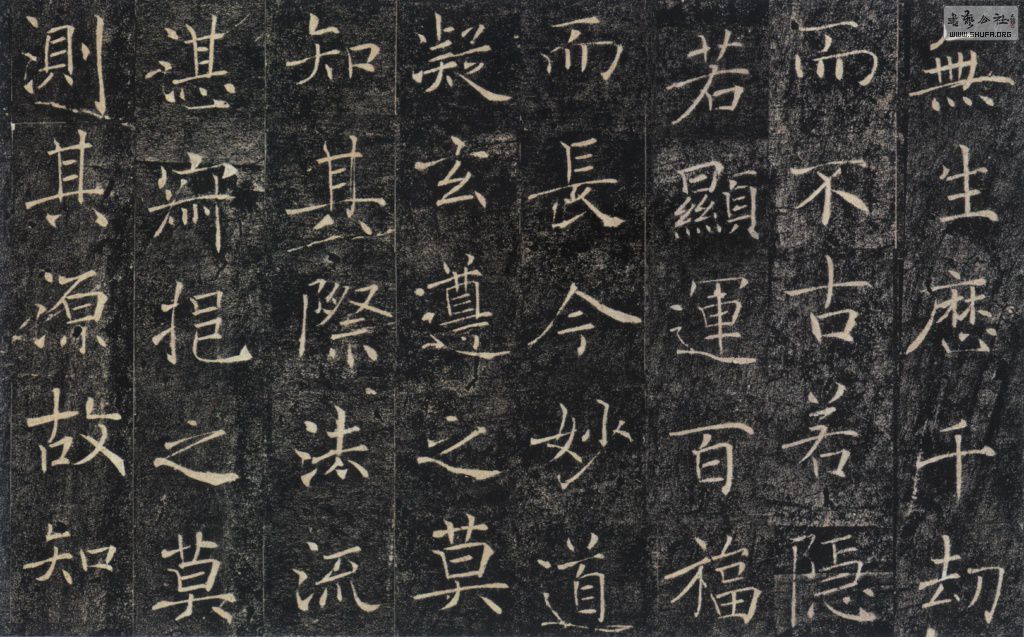 無生歷千劫
而不古若隱
若顯運百福
而長今妙道
凝玄遵之莫
知其際法流
湛寂挹之莫
測其源故知
書藝公社
WWW.SHUFA.ORG